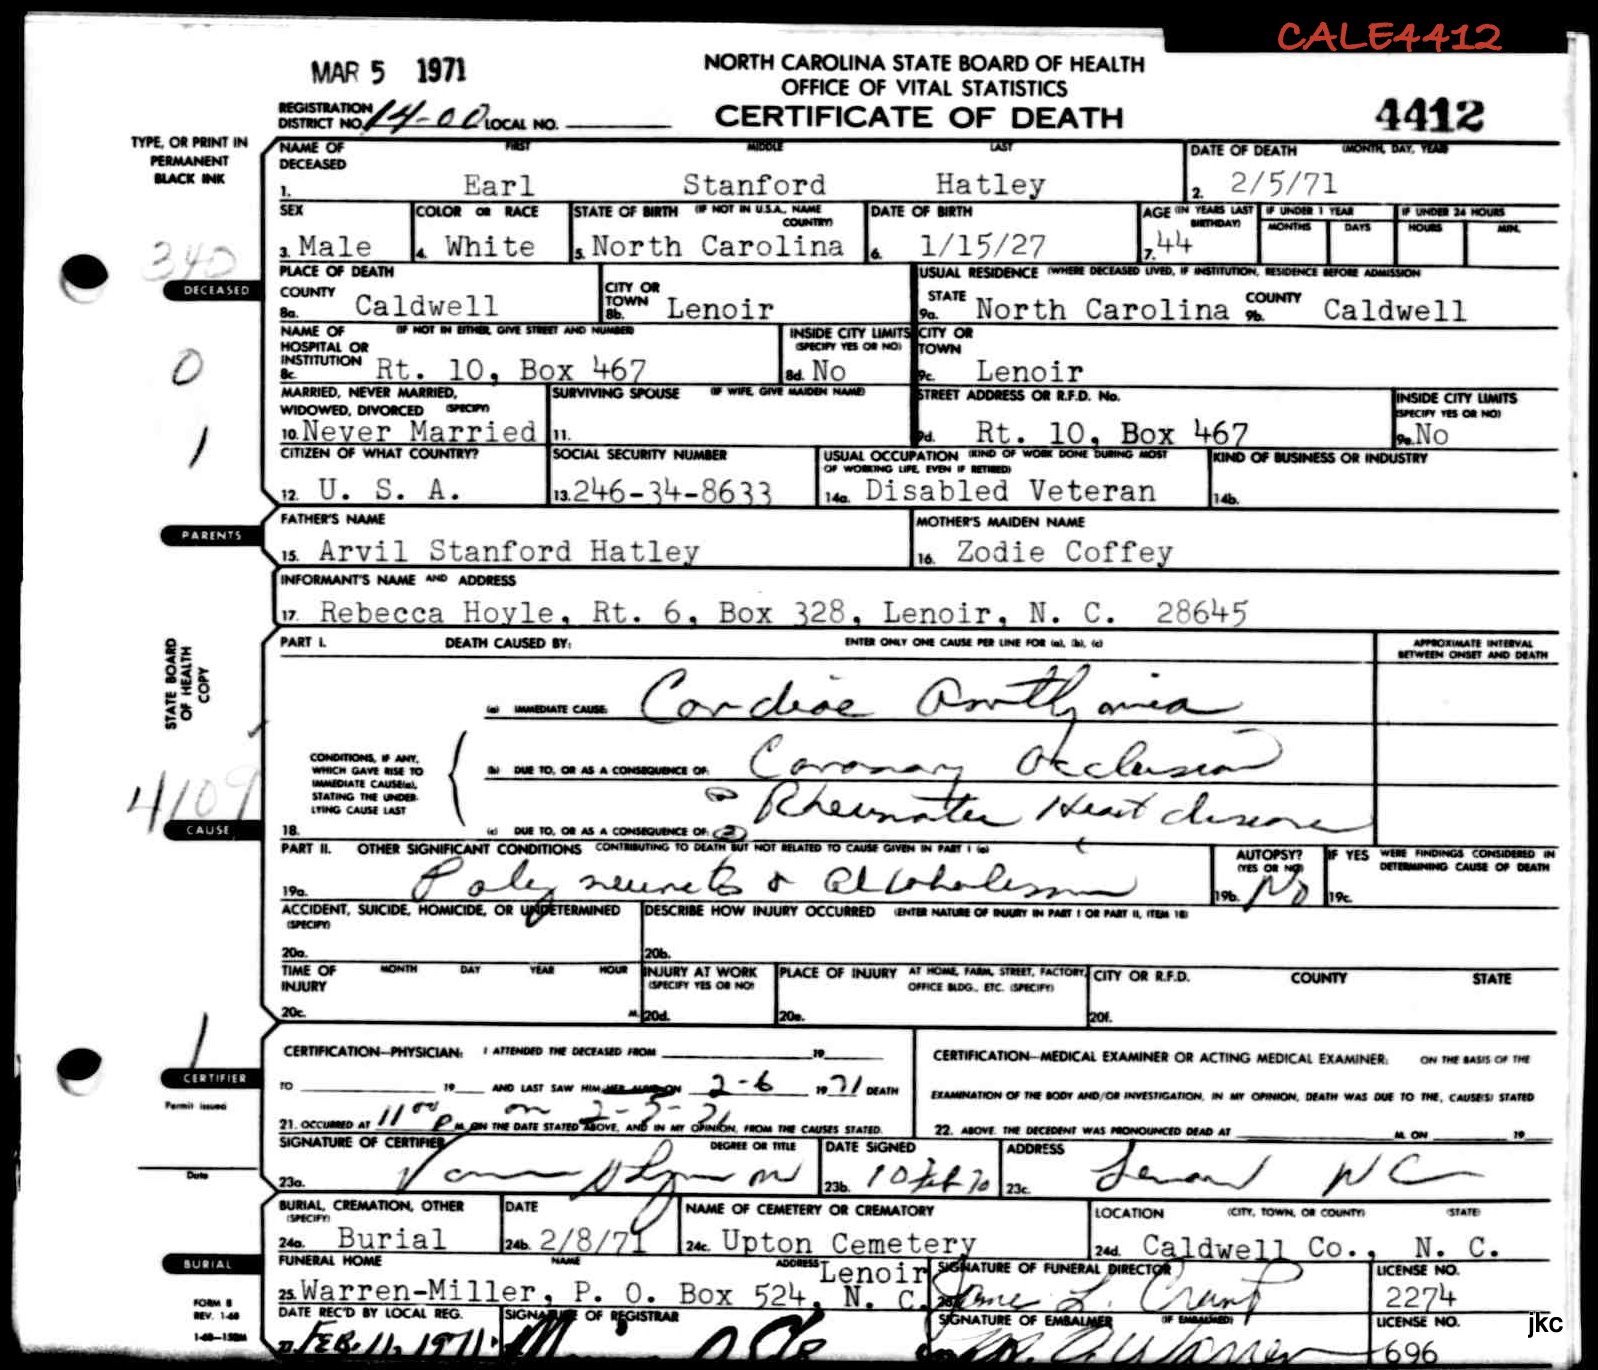 CALE4412
MAR 5 1971
NORTH CAROLINA STATE BOARD OF HEALTH
OFFICE OF VITAL STATISTICS
CERTIFICATE OF DEATH
4412
REGISTRATION
DISTRICT NO. 14-00 LOCAL NO.
TYPE, OR PRINT IN
PERMANENT
BLACK INK
NAME OF DECEASED FIRST MIDDLE LAST
1. Earl Stanford Hatley
DATE OF DEATH (MONTH, DAY, YEAR)
2. 2/5/71
SEX
3. Male
COLOR OR RACE
4. White
STATE OF BIRTH (IF NOT IN U.S.A., NAME COUNTRY)
5. North Carolina
DATE OF BIRTH
6. 1/15/27
AGE (IN YEARS LAST BIRTHDAY)
7. 44
IF UNDER 1 YEAR
MONTHS DAYS
IF UNDER 24 HOURS
HOURS MIN.
340
DECEASED
PLACE OF DEATH
COUNTY
8a. Caldwell
CITY OR TOWN
8b. Lenoir
USUAL RESIDENCE (WHERE DECEASED LIVED, IF INSTITUTION, RESIDENCE BEFORE ADMISSION
STATE
9a. North Carolina
COUNTY
9b. Caldwell
0
NAME OF HOSPITAL OR INSTITUTION (IF NOT IN EITHER, GIVE STREET AND NUMBER)
8c. Rt. 10, Box 467
INSIDE CITY LIMITS
(SPECIFY YES OR NO)
8d. No
CITY OR TOWN
9c. Lenoir
1
MARRIED, NEVER MARRIED,
WIDOWED, DIVORCED (SPECIFY)
10. Never Married
SURVIVING SPOUSE (IF WIFE, GIVE MAIDEN NAME)
11.
STREET ADDRESS OR R.F.D. No.
9d. Rt. 10, Box 467
INSIDE CITY LIMITS
(SPECIFY YES OR NO)
9e. No
CITIZEN OF WHAT COUNTRY?
12. U. S. A.
SOCIAL SECURITY NUMBER
13. 246-34-8633
USUAL OCCUPATION (KIND OF WORK DONE DURING MOST
OF WORKING LIFE, EVEN IF RETIRED)
14a. Disabled Veteran
KIND OF BUSINESS OR INDUSTRY
14b.
PARENTS
FATHER'S NAME
15. Arvil Stanford Hatley
MOTHER'S MAIDEN NAME
16. Zodie Coffey
INFORMANT'S NAME AND ADDRESS
17. Rebecca Hoyle, Rt. 6, Box 328, Lenoir, N. C. 28645
STATE BOARD
OF HEALTH
COPY
PART I. DEATH CAUSED BY: ENTER ONLY ONE CAUSE PER LINE FOR (a), (b), (c)
APPROXIMATE INTERVAL
BETWEEN ONSET AND DEATH
(a) IMMEDIATE CAUSE:
CONDITIONS, IF ANY,
WHICH GAVE RISE TO
IMMEDIATE CAUSE(a),
STATING THE UNDER-
LYING CAUSE LAST
(b) DUE TO, OR AS A CONSEQUENCE OF: Coronary Occlusion
(c) DUE TO, OR AS A CONSEQUENCE OF: Rheumatic Heart disease
18.
4109
CAUSE
PART II. OTHER SIGNIFICANT CONDITIONS CONTRIBUTING TO DEATH BUT NOT RELATED TO CAUSE GIVEN IN PART I (a)
19a. Poly neuritis & Alcoholism
AUTOPSY?
(YES OR NO)
19b. No
IF YES WERE FINDINGS CONSIDERED IN
DETERMINING CAUSE OF DEATH
19c.
ACCIDENT, SUICIDE, HOMICIDE, OR UNDETERMINED
(SPECIFY)
20a.
DESCRIBE HOW INJURY OCCURRED (ENTER NATURE OF INJURY IN PART I OR PART II, ITEM 18)
20b.
TIME OF INJURY MONTH DAY YEAR HOUR
20c. M.
INJURY AT WORK
(SPECIFY YES OR NO)
20d.
PLACE OF INJURY AT HOME, FARM, STREET, FACTORY,
OFFICE BLDG., ETC. (SPECIFY)
20e.
CITY OR R.F.D. COUNTY STATE
20f.
1
CERTIFIER
Permit issued
Date
CERTIFICATION—PHYSICIAN: I ATTENDED THE DECEASED FROM 19
TO 19 AND LAST SAW HIM HER ALIVE ON 2-6 1971 DEATH
21. OCCURRED AT 11 00 P M. ON THE DATE STATED ABOVE, AND IN MY OPINION, FROM THE CAUSES STATED.
on 2-5-71
CERTIFICATION—MEDICAL EXAMINER OR ACTING MEDICAL EXAMINER: ON THE BASIS OF THE
EXAMINATION OF THE BODY AND/OR INVESTIGATION, IN MY OPINION, DEATH WAS DUE TO THE, CAUSE(S) STATED
22. ABOVE. THE DECEDENT WAS PRONOUNCED DEAD AT M. ON 19
SIGNATURE OF CERTIFIER DEGREE OR TITLE
23a.
DATE SIGNED
23b. 10 Feb 70
ADDRESS
23c. Lenoir N C
BURIAL, CREMATION, OTHER
(SPECIFY)
24a. Burial
DATE
24b. 2/8/71
NAME OF CEMETERY OR CREMATORY
24c. Upton Cemetery
LOCATION (CITY, TOWN, OR COUNTY) (STATE)
24d. Caldwell Co., N. C.
BURIAL
FUNERAL HOME NAME ADDRESS
25. Warren-Miller, P. O. Box 524, Lenoir, N. C.
SIGNATURE OF FUNERAL DIRECTOR
LICENSE NO.
2274
FORM 8
REV. 1-68
DATE REC'D BY LOCAL REG.
FEB. 11, 1971
SIGNATURE OF REGISTRAR
SIGNATURE OF EMBALMER (IF EMBALMED)
LICENSE NO.
696
jkc